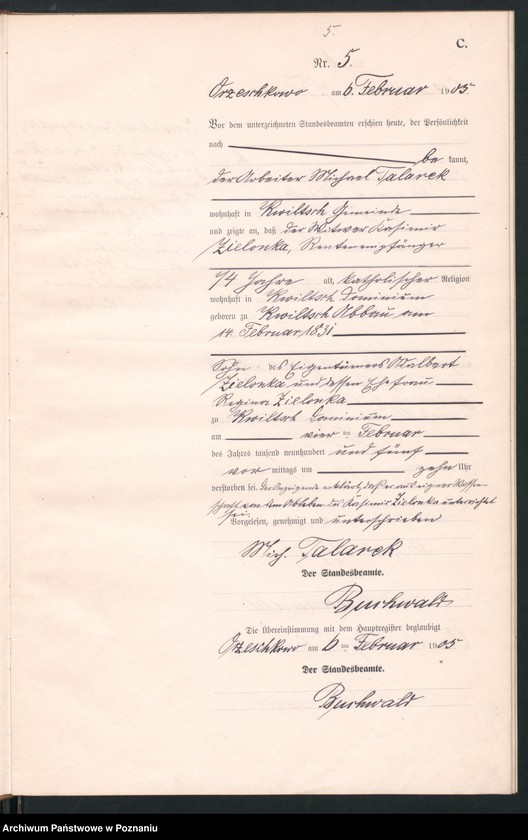 5.
C.
Nr. 5.
Orzeschkowo am 6. Februar 1905.
Vor dem unterzeichneten Standesbeamten erschien heute, der Persönlichkeit
nach be kannt,
der Arbeiter Michael Talarek
wohnhaft in Kwiltsch Gemeinde
und zeigte an, daß der Witwer Kasimir
Zielonka, Rentenempfänger
74 Jahre alt, katholischer Religion
wohnhaft in Kwiltsch Dominium
geboren zu Kwiltsch Abbau am
14. Februar 1831
Sohn des Eigentümers Adalbert
Zielonka und dessen Ehefrau
Regina Zielonka
zu Kwiltsch Dominium
am vier ten Februar
des Jahres tausend neunhundert und fünf
vor mittags um zehn Uhr
verstorben sei. Der Anzeigende erklärt, daß er aus eigner Wissen-
schaft von dem Ableben des Kasimir Zielonka unterrichtet
sei.
Vorgelesen, genehmigt und unterschrieben
Mich. Talarek
Der Standesbeamte.
Buchwald
Die Übereinstimmung mit dem Hauptregister beglaubigt
Orzeschkowo am 6 ten Februar 1905
Der Standesbeamte.
Buchwald
Archiwum Państwowe w Poznaniu